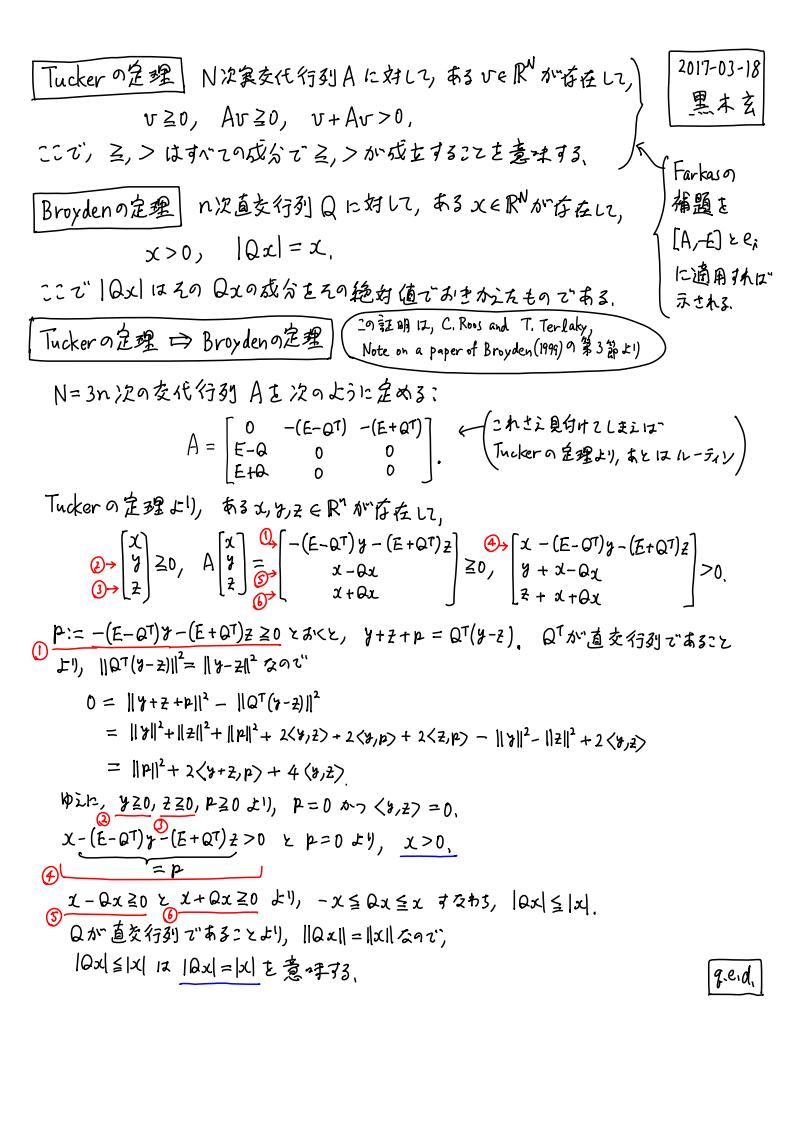 Tuckerの定理 N次実交代行列 A に対して, ある v∈ℝᴺ が存在して,
v≧0, Av≧0, v+Av>0.
ここで, ≧, > はすべての成分で ≧, > が成立することを意味する.
2017-03-18
黒木玄
Broydenの定理 n次直交行列 Q に対して, ある x∈ℝᴺ が存在して,
x>0, |Qx|=x.
ここで |Qx| はその Qxの成分をその絶対値でおきかえたものである.
Farkasの
補題を
[A,-E]とeᵢ
に適用すれば
示される.
Tuckerの定理 ⇒ Broydenの定理
この証明は, C. Roos and T. Terlaky,
Note on a paper of Broyden(1999) の第3節より
N=3n 次の交代行列 A を次のように定める:
A = [ 0 -(E-Qᵀ) -(E+Qᵀ)
E-Q 0 0
E+Q 0 0 ].
これさえ見付けてしまえば
Tuckerの定理より, あとはルーティン
Tuckerの定理より, ある x,y,z∈ℝⁿ が存在して,
② ③ [x y z] ≧0, A [x y z] = ① ⑤ ⑥ [-(E-Qᵀ)y-(E+Qᵀ)z
x-Qx
x+Qx] ≧0, ④ [x-(E-Qᵀ)y-(E+Qᵀ)z
y+x-Qx
z+x+Qx] >0.
① p:= -(E-Qᵀ)y-(E+Qᵀ)z≧0 とおくと, y+z+p=Qᵀ(y-z). Qᵀが直交行列であること
より, ||Qᵀ(y-z)||²=||y-z||² なので
0 = ||y+z+p||² - ||Qᵀ(y-z)||²
= ||y||²+||z||²+||p||²+2<y,z>+2<y,p>+2<z,p>-||y||²-||z||²+2<y,z>
= ||p||²+2<y+z,p>+4<y,z>.
ゆえに, y≧0, z≧0, p≧0 より, p=0 かつ <y,z>=0.
② ③
x-(E-Qᵀ)y-(E+Qᵀ)z>0 と p=0 より, x>0.
④ =p
x-Qx≧0 と x+Qx≧0 より, -x≦Qx≦x すなわち, |Qx|≦|x|.
⑤ ⑥
Qが直交行列であることより, ||Qx||=||x||なので,
|Qx|≦|x| は |Qx|=|x| を意味する.
q.e.d.